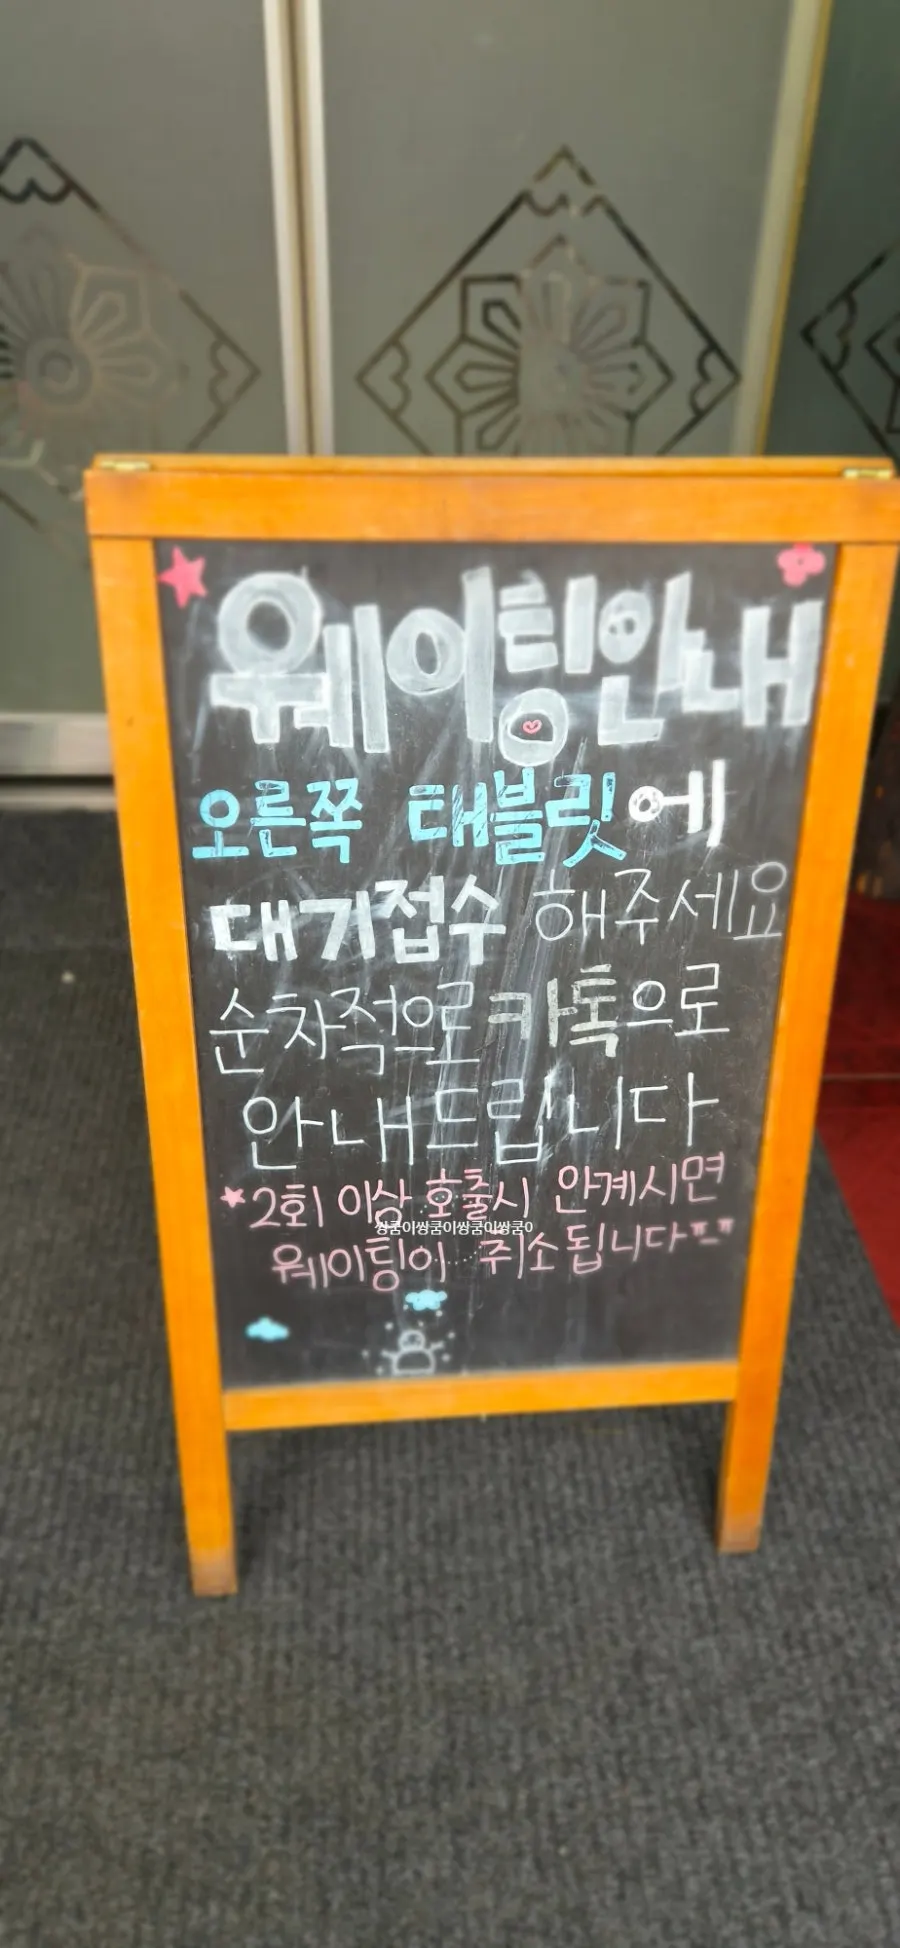 웨이팅안내
오른쪽 태블릿에
대기접수 해주세요
순차적으로 카톡으로
안내드립니다
★2회 이상 호출시 안계시면
쌍쿰이쌍쿰이쌍쿰이쌍쿰이
웨이팅이 취소됩니다ㅠㅠ